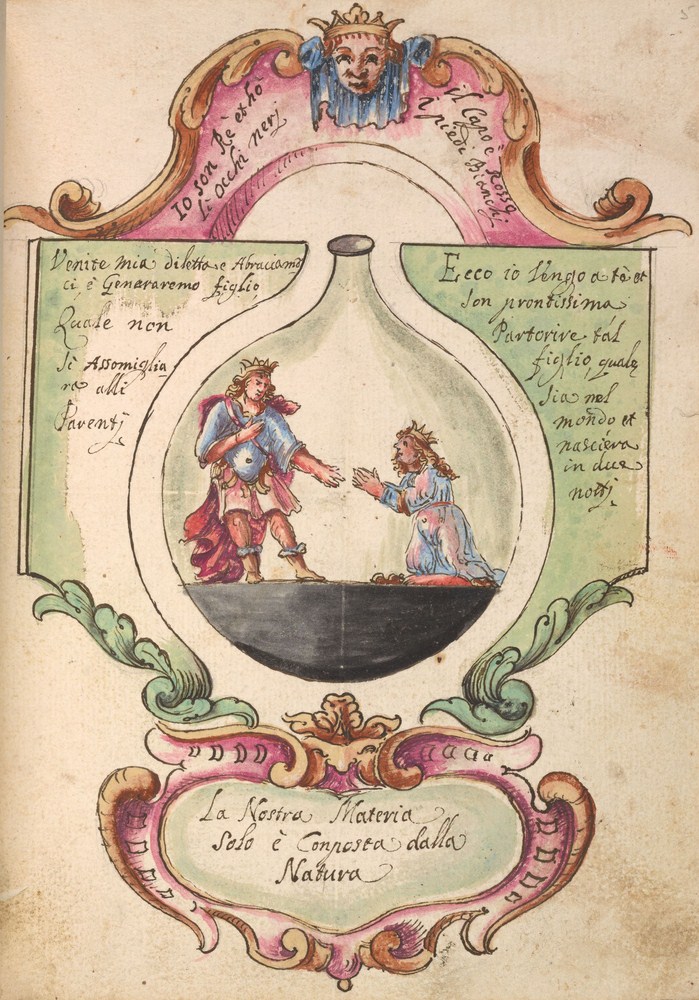 Io son Rè et hò
li occhi neri
il Capo è Rosso
i piedi Bianchi
Venite mia diletta e Abraciamo
ci è Generaremo figlio
Quale non
si Assomiglia
ra alli
Parenti
Ecco io vengo a tè et
son prontissima
Partorire tal
figlio, quale
sia nel
mondo et
nasciera
in due
notti
La Nostra Materia
solo è Conposta dalla
Natura
5